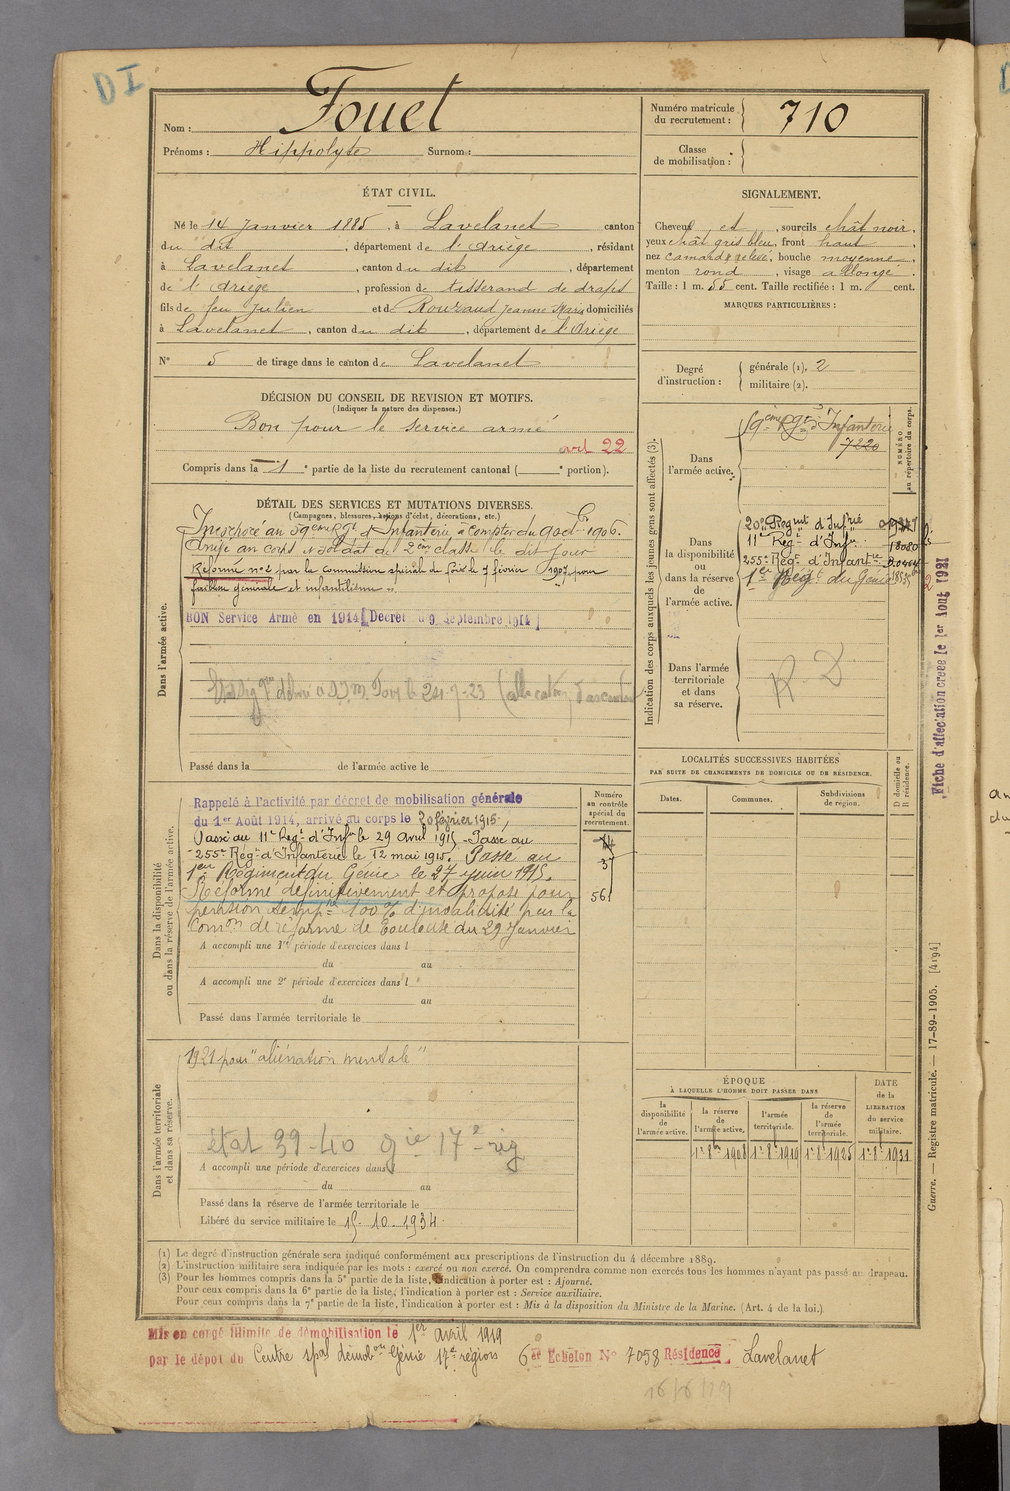 DI
Nom : Fouet
Prénoms : Hippolyte Surnom :
Numéro matricule du recrutement : 710
Classe de mobilisation :
ÉTAT CIVIL.
Né le 14 Janvier 1885, à Lavelanet canton
du dit, département de l'Ariège, résidant
à Lavelanet, canton du dit, département
de l'Ariège, profession de tisserand de draps
fils de feu Julien et de Rouzaud Jeanne Marie domiciliés
à Lavelanet, canton du dit, département de l'Ariège
N° 5 de tirage dans le canton de Lavelanet
SIGNALEMENT.
Cheveux et, sourcils chât noir,
yeux chât gris bleu, front haut,
nez camard & relevé, bouche moyenne,
menton rond, visage allongé.
Taille : 1 m. 55 cent. Taille rectifiée : 1 m. cent.
MARQUES PARTICULIÈRES :
Degré d'instruction : générale (1). 2
militaire (2).
DÉCISION DU CONSEIL DE REVISION ET MOTIFS.
(Indiquer la nature des dispenses.)
Bon pour le service armé
22
Compris dans la 1e partie de la liste du recrutement cantonal ( e portion).
DÉTAIL DES SERVICES ET MUTATIONS DIVERSES.
(Campagnes, blessures, actions d'éclat, décorations, etc.)
Dans l'armée active.
Incorporé au 59ème Rgt d'Infanterie à Compter du 9 oct. 1906.
Arrivé au corps et soldat de 2ème classe le dit jour
Réformé n° 2 par la commission spéciale de Foix le 7 février 1907 pour
faiblesse générale et infantilisme
BON Service Armé en 1914 [Décret du 9 Septembre 1914]
Passé dans la de l'armée active le
Indication des corps auxquels les jeunes gens sont affectés (3).
NUMÉRO au répertoire du corps.
Dans l'armée active.
59ème Rgt d'Infanterie
7220
Dans la disponibilité ou dans la réserve de l'armée active.
20e Regmt d'Infrie
11e Regt d'Infie 18080
255e Regt d'Infantrie
1er Régt du Génie
Dans l'armée territoriale et dans sa réserve.
R-D
Fiche d'affectation créée le 1er Aout 1921
LOCALITÉS SUCCESSIVES HABITÉES
PAR SUITE DE CHANGEMENTS DE DOMICILE OU DE RÉSIDENCE.
D domicile ou R résidence.
Dates. Communes. Subdivisions de région.
Dans la disponibilité ou dans la réserve de l'armée active.
Numéro au contrôle spécial du recrutement.
Rappelé à l'activité par décret de mobilisation générale
du 1er Août 1914, arrivé au corps le 20 février 1915,
Passé au 11e Regt d'Infie le 29 avril 1915 - Passé au
255e Régt d'Infanterie le 12 mai 1915. Passé au
1er Régiment du Génie le 27 juin 1915.
Réformé définitivement et proposé pour
561
pension tempre 100% d'invalidité par la
Comon de réforme de Toulouse du 29 Janvier
A accompli une 1re période d'exercices dans l
du au
A accompli une 2e période d'exercices dans l
du au
Passé dans l'armée territoriale le
Dans l'armée territoriale et dans sa réserve.
1921 pour "aliénation mentale"
état 39-40 gie 17e rég
A accompli une période d'exercices dans
du au
Passé dans la réserve de l'armée territoriale le
Libéré du service militaire le 15-10-1934
ÉPOQUE
À LAQUELLE L'HOMME DOIT PASSER DANS
DATE de la LIBÉRATION du service militaire.
la disponibilité de l'armée active. la réserve de l'armée active. l'armée territoriale. la réserve de l'armée territoriale.
1er 8bre 1908 1er 8bre 1919 1er 8bre 1925 1er 8bre 1931
Guerre. — Registre matricule. — 17-89-1905. [4194]
(1) Le degré d'instruction générale sera indiqué conformément aux prescriptions de l'instruction du 4 décembre 1889.
(2) L'instruction militaire sera indiquée par les mots : exercé ou non exercé. On comprendra comme non exercés tous les hommes n'ayant pas passé au drapeau.
(3) Pour les hommes compris dans la 5e partie de la liste, l'indication à porter est : Ajourné.
Pour ceux compris dans la 6e partie de la liste, l'indication à porter est : Service auxiliaire.
Pour ceux compris dans la 7e partie de la liste, l'indication à porter est : Mis à la disposition du Ministre de la Marine. (Art. 4 de la loi.)
Mis en congé illimité de démobilisation le 1er avril 1919
par le dépôt du Centre spal démobon Génie 17e région 6er Echelon N° 7058 Résidence Lavelanet